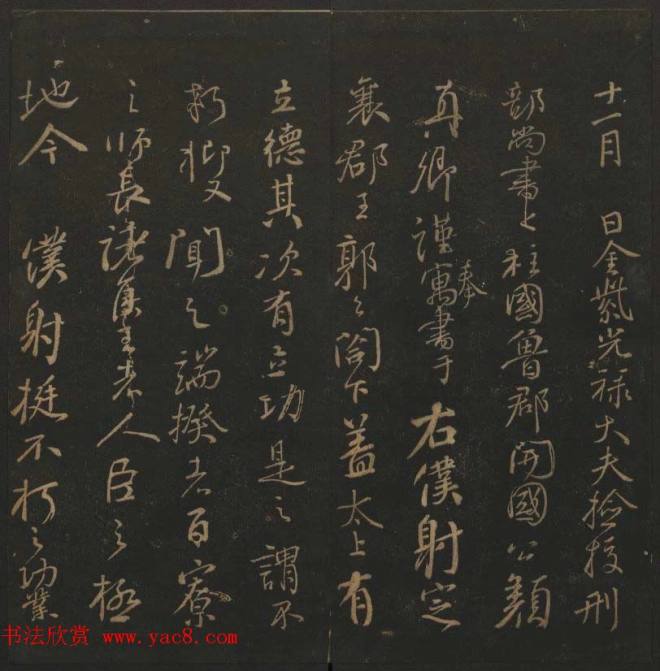 十一月 日金紫光禄大夫检挍刑
部尚書上柱國魯郡開國公顏
真卿謹奉寓書于右僕射定
襄郡王郭公閤下蓋太上有
立德其次有立功是之謂不
朽抑又聞之端揆者百寮
之師長諸侯王者人臣之極
地今 僕射挺不朽之功業
书法欣赏 www.yac8.com